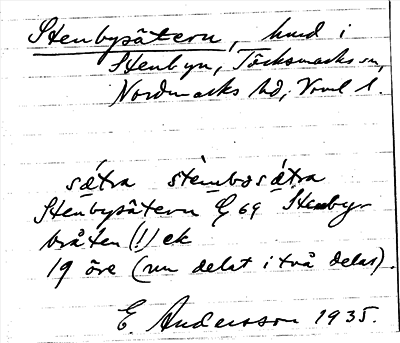 Stenbysätern, hmd i
Stenbyn, Töcksmarks sn,
Nordmarks hd, Vrml l.
sǽtra stèmbosǽtra
Stenbysätern Gg 69 Stenby
bråten (!) ek
19 öre (nu delat i två delar).
E. Andersson 1935.